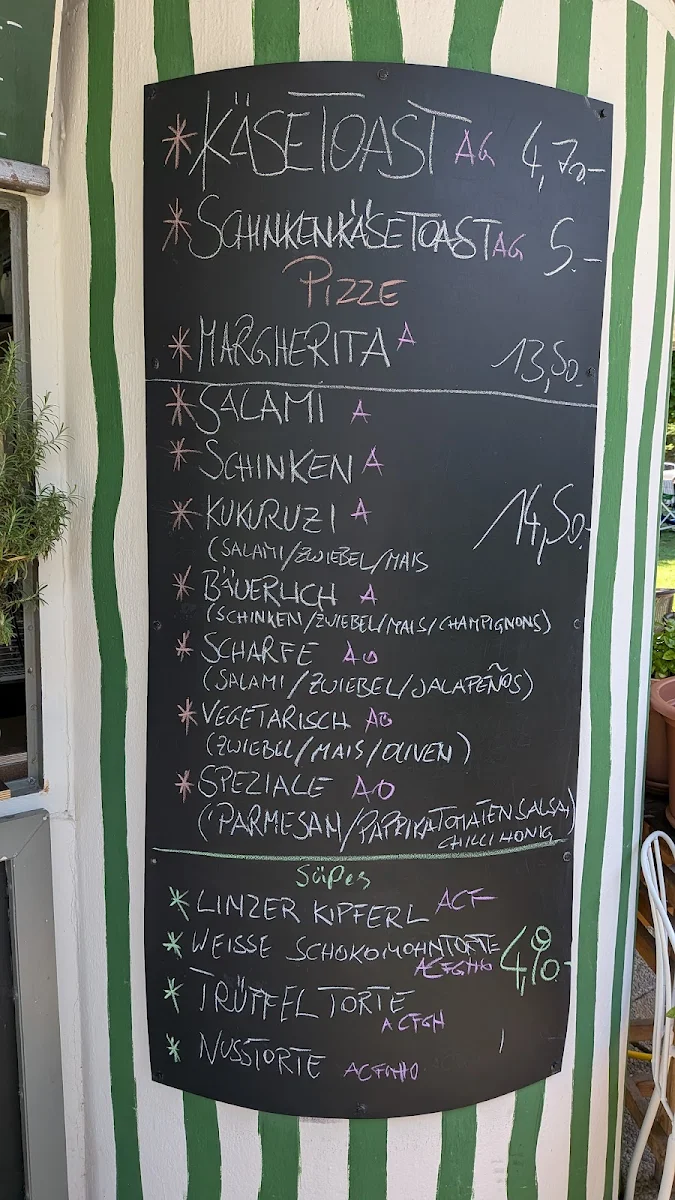 * KÄSETOAST AG 4,70.-
* SCHINKENKÄSETOAST AG 5.-
PIZZE
* MARGHERITA A 13,50.-
* SALAMI A
* SCHINKEN A
* KUKURUZI A 14,50.-
(SALAMI/ZWIEBEL/MAIS
* BÄUERLICH A
(SCHINKEN/ZWIEBEL/MAIS/CHAMPIGNONS)
* SCHARFE AO
(SALAMI/ZWIEBEL/JALAPEÑOS)
* VEGETARISCH AO
(ZWIEBEL/MAIS/OLIVEN)
* SPEZIALE AO
(PARMESAN/PAPRIKATOMATENSALSA,
CHILLIHONIG
Süßes
* LINZER KIPFERL ACF
* WEISSE SCHOKOMOHNTORTE 4,90.-
ACFGHO
* TRÜFFELTORTE
ACFGH
* NUSSTORTE ACFGHO